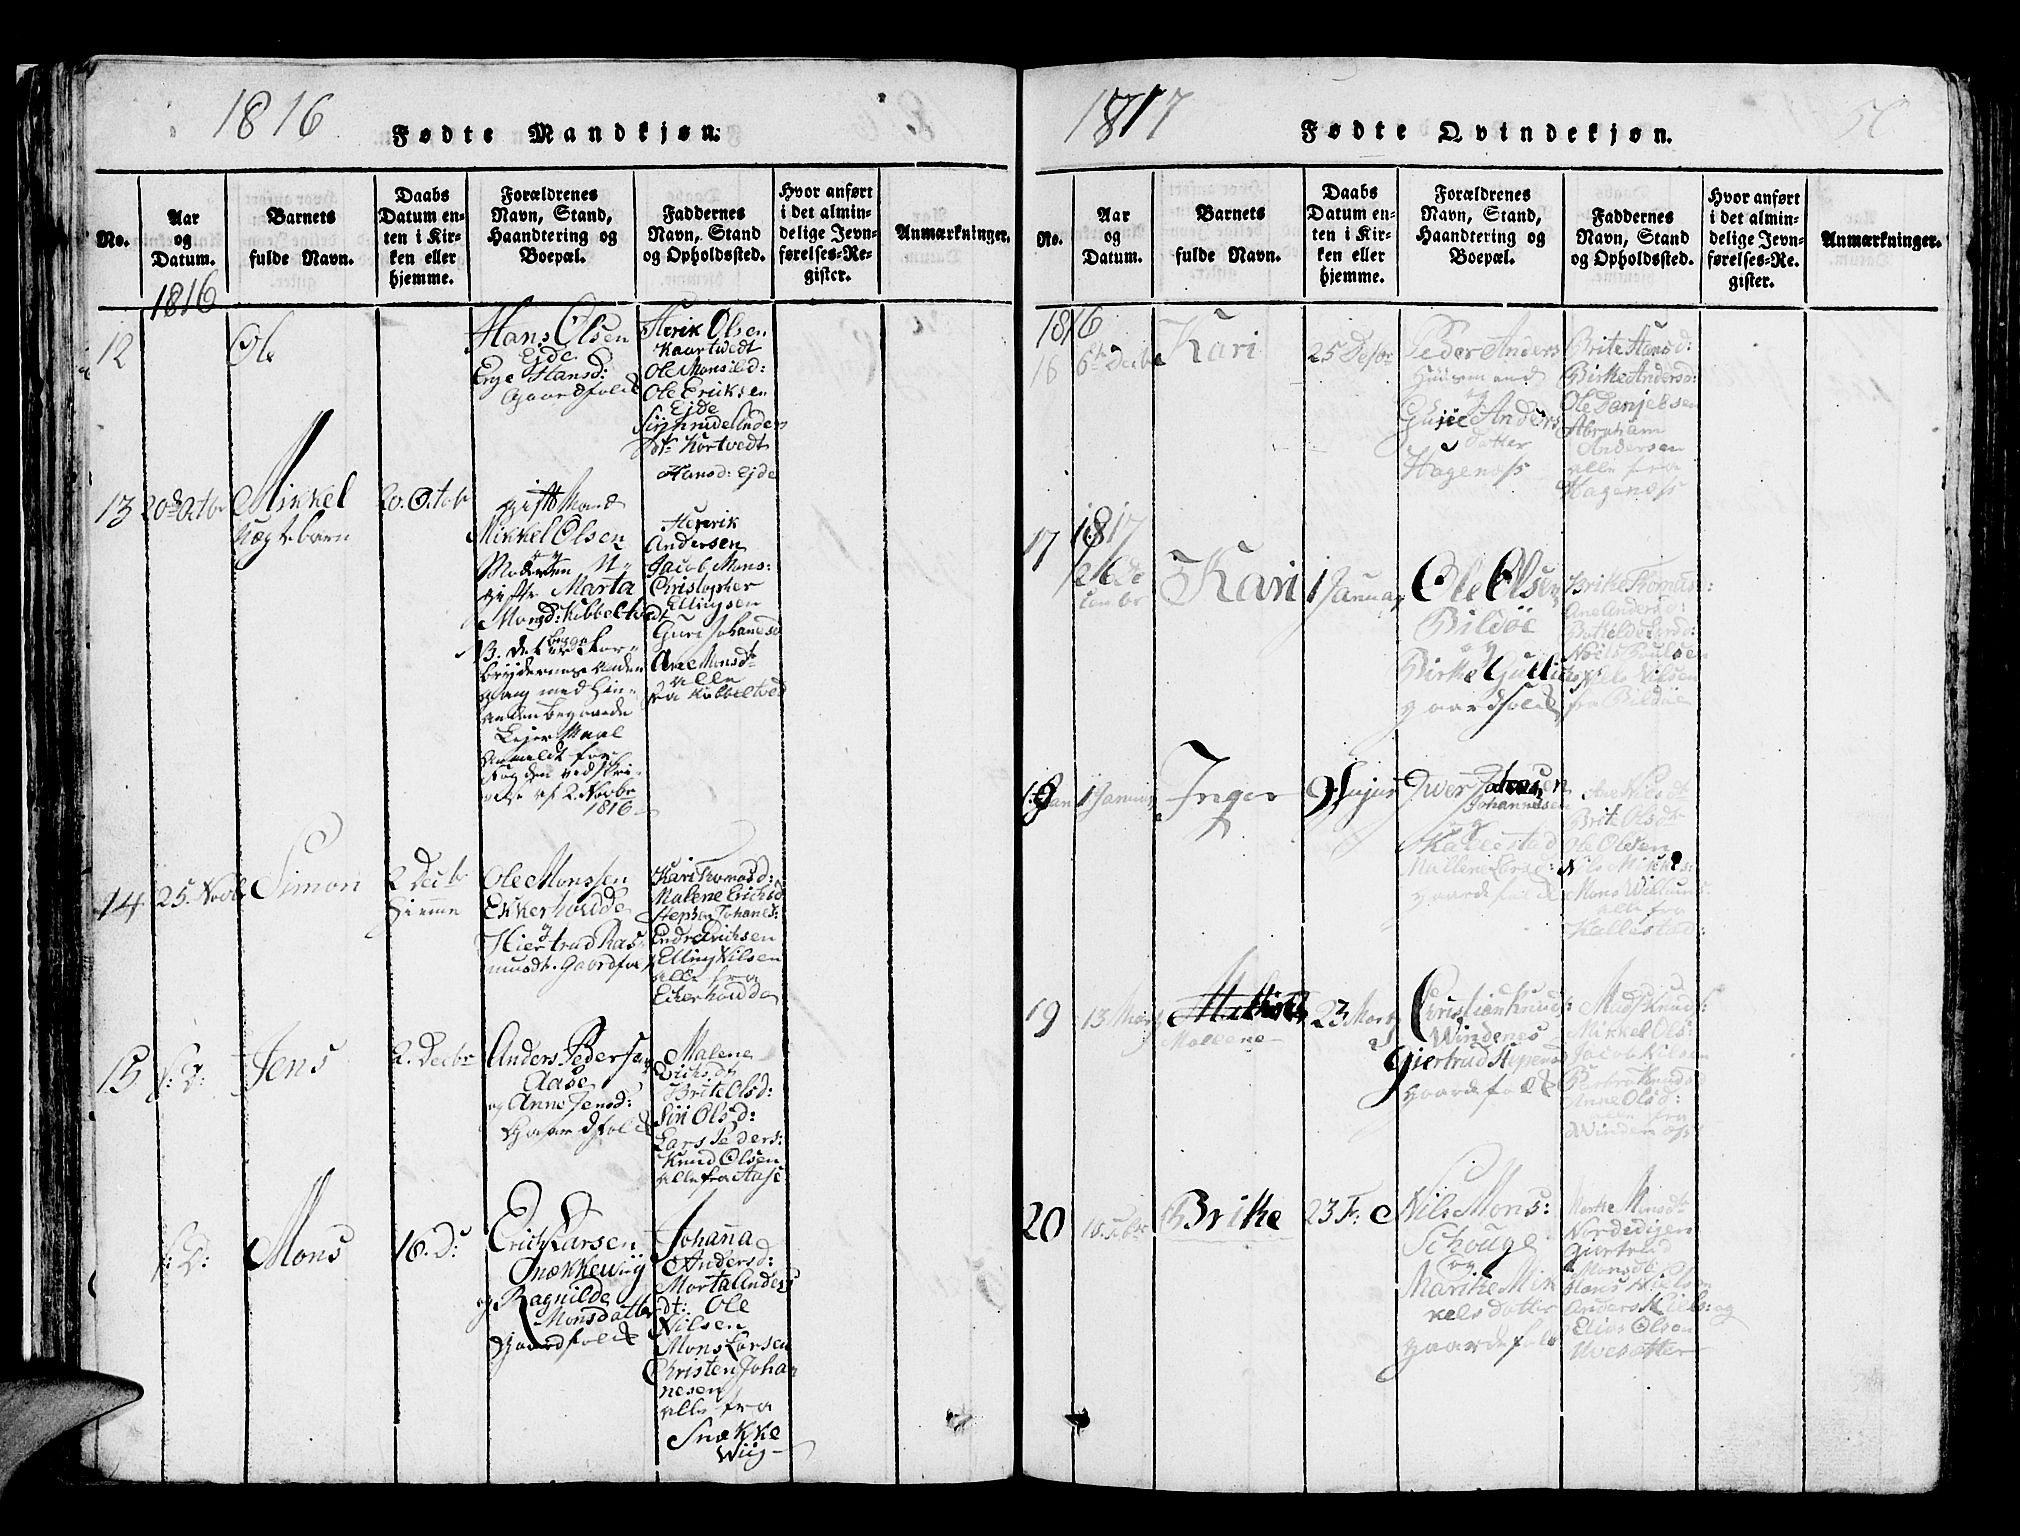 1816
Fødte Mandkjøn.
No.
Aar
og
Datum.
Barnets
fulde Navn.
Daabs
Datum en-
ten i Kir-
ken eller
hjemme.
Forældrenes
Navn, Stand,
Haandtering og
Boepæl.
Faddernes
Navn, Stand
og Opholdssted.
Hvor anført
i det almin-
delige Jevn-
førelses-Re-
gister.
Anmærkninger.
1816
12
Ole
Hans Olsen
Ejde
Hansd:
Gaardfolk
Olsen
Kaartwedt
Ole Monsled:
Ole Eriksen
Ejde
Kortvedt
Hansd: Ejde
13
20de Octbr
Mikkel
20. Octobr
gift Mand
Mikkel Olsen
og
Moderen
gifte Marta
Monsd: Kibbeltvedt
begge
gang med hin-
anden begaaede
Lejer Maal
Anmeldt for
Fogden ved skri-
velse af 2. Novbr
1816
Henrik
Andersen
Jacob Mons:
Christopher
Ellingsen
Guri Johanesd
Ane Monsdtr
alle
fra Kibbeltved
14
25. Novb
Simon
2 Decbr
hiemme
Ole Monssen
Ekkerhoudde
og
Hiertrud Ras-
musdt. Gaardfolk
Kari Thomasd:
Malene Erichsd
Stephen Johanes:
Endre Erichsen
Elling Nilsen
alle fra
Ekerhoudda
15
f: D:
Jens
2. Decbr
Anders Pedersen
Aase
og Anne Jensd:
Gaardfolk
Malene
Erichsdt
Brite Olsd:
Siri Olsd:
Lars Peders:
Knud Olsen
alle fra Aase
f: D:
Mons
16. D:
Erich Larsen
Snækkewiig
og Ragnilde
Monsdatter
Gaardfolk
Johana
Andersd:
Marta Anders
dt: Ole
Nilsen
Mons Larsen
Christen Joha-
nesen
alle fra
Snække
Wiig
1817
Fødte Qvindekjøn.
50
No.
Aar
og
Datum.
Barnets
fulde Navn.
Daabs
Datum en-
ten i Kir-
ken eller
hjemme.
Forældrenes
Navn, Stand,
Haandtering og
Boepæl.
Faddernes
Navn, Stand
og Opholdssted.
Hvor anført
i det almin-
delige Jevn-
førelses-Re-
gister.
Anmærkninger.
1816
16
6te Decbr
Kari
25 Desbr
Peder Anders
Huusmand
og
Anders
datter
Hagenæss
Brite Hansd:
Birke Andersd:
Ole Danjelsen
Abraham
Andersen
alle fra
Hagenæss
17
1817
26 De
cembr
Kari
1 Januar
Ole Olsen
Bildøe
og
Birke Gutlids
gaardfolk
Brike Thomas:
Ane Andersd:
Bothilde Larsd:
Niels Poulsen
Niels Nilsen
fra Bildøe
18
1 Januar
Inger
9
Iver
Johannesen
og
Kallestad
Mallene Larsd:
gaardefolk
Ane Nilsdt
Brite Olsdt
Ole Olsen
Nils Mickels:
Mons Willumd:
alle fra
Kallestad:
19
13 Mars
Malvene
23 Marts
Christian Knuds:
Windenes
Giertrud Stepensd
gaardefolk
Mads Knuds:
Mikkel Ols:
Jacob Nilsen
Barbro Knuds
Anne Olsd:
alle fra
Windenæss
20
10. Febr
Brike
23 F:
Nils Mons:
Schouge
og
Marike Mik
kelsdatter
gaardefolk
Monsdt
Nordedigen
Giertrud
Monsdt
Hans Nilsen
Anders Niels: og
Elias Olson